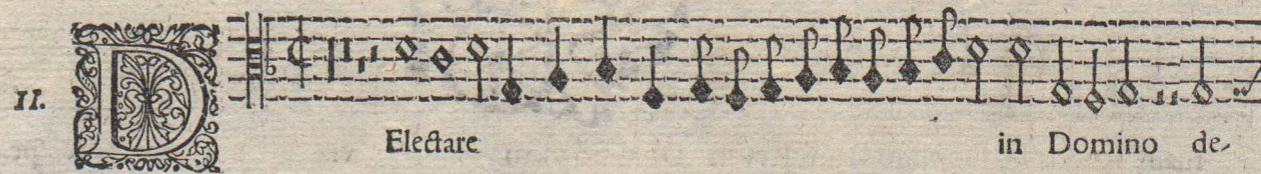 II.
DElectare in Domino de-